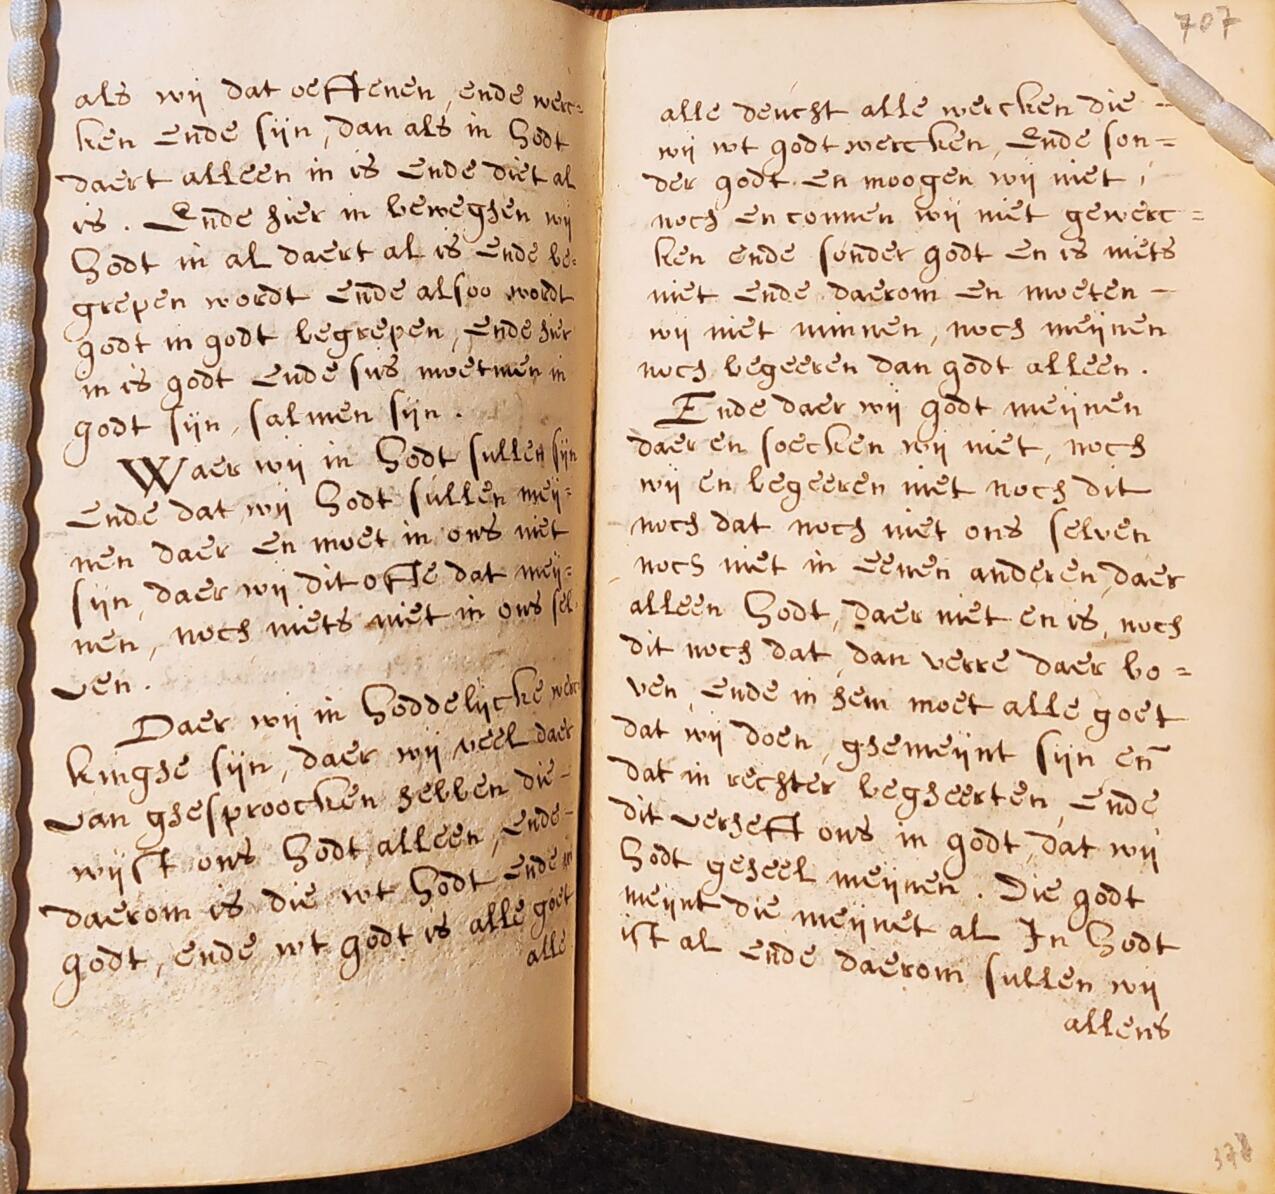 als wij dat oeffenen, ende werc=
ken ende sijn, dan als in Godt
daert alleen in is ende diet al
is. Ende hier in beweghen wij
Godt in al daert al is ende be=
grepen wordt ende alsoo wordt
godt in godt begrepen, ende hier
in is godt ende sus moetmen in
godt sijn, salmen sijn.
Waer wij in Godt sullen sijn
ende dat wij Godt sullen meij=
nen daer en moet in ons niet
sijn, daer wij dit offe dat meij=
nen, noch niets niet in ons sel=
ven.
Daer wij in Goddelijcke werc=
kinghe sijn, daer wij veel daer
van ghesproocken hebben die-
wijst ons Godt alleen, ende-
daerom is die wt Godt ende in
godt, ende wt godt is alle goet
alle
707
alle deucht alle wercken die -
wij wt godt wercken, Ende son=
der godt en moogen wij niet,
noch en connen wij niet gewerc=
ken ende sonder godt en is niets
niet ende daerom en moeten -
wij niet minnen, noch meijnen
noch begeeren dan godt alleen.
Ende daer wij godt meijnen
daer en soecken wij niet, noch
wij en begeeren niet noch dit
noch dat noch niet ons selven
noch niet in eenen anderen, daer
alleen Godt, daer niet en is, noch
dit noch dat, dan verre daer bo=
ven, ende in hem moet alle goet
dat wij doen, ghemeijnt sijn en̄
dat in rechter begheerten, ende
dit verheft ons in godt, dat wij
Godt geheel meijnen. Die godt
meijnt die meijnet al In Godt
ist al ende daerom sullen wij
allens
378